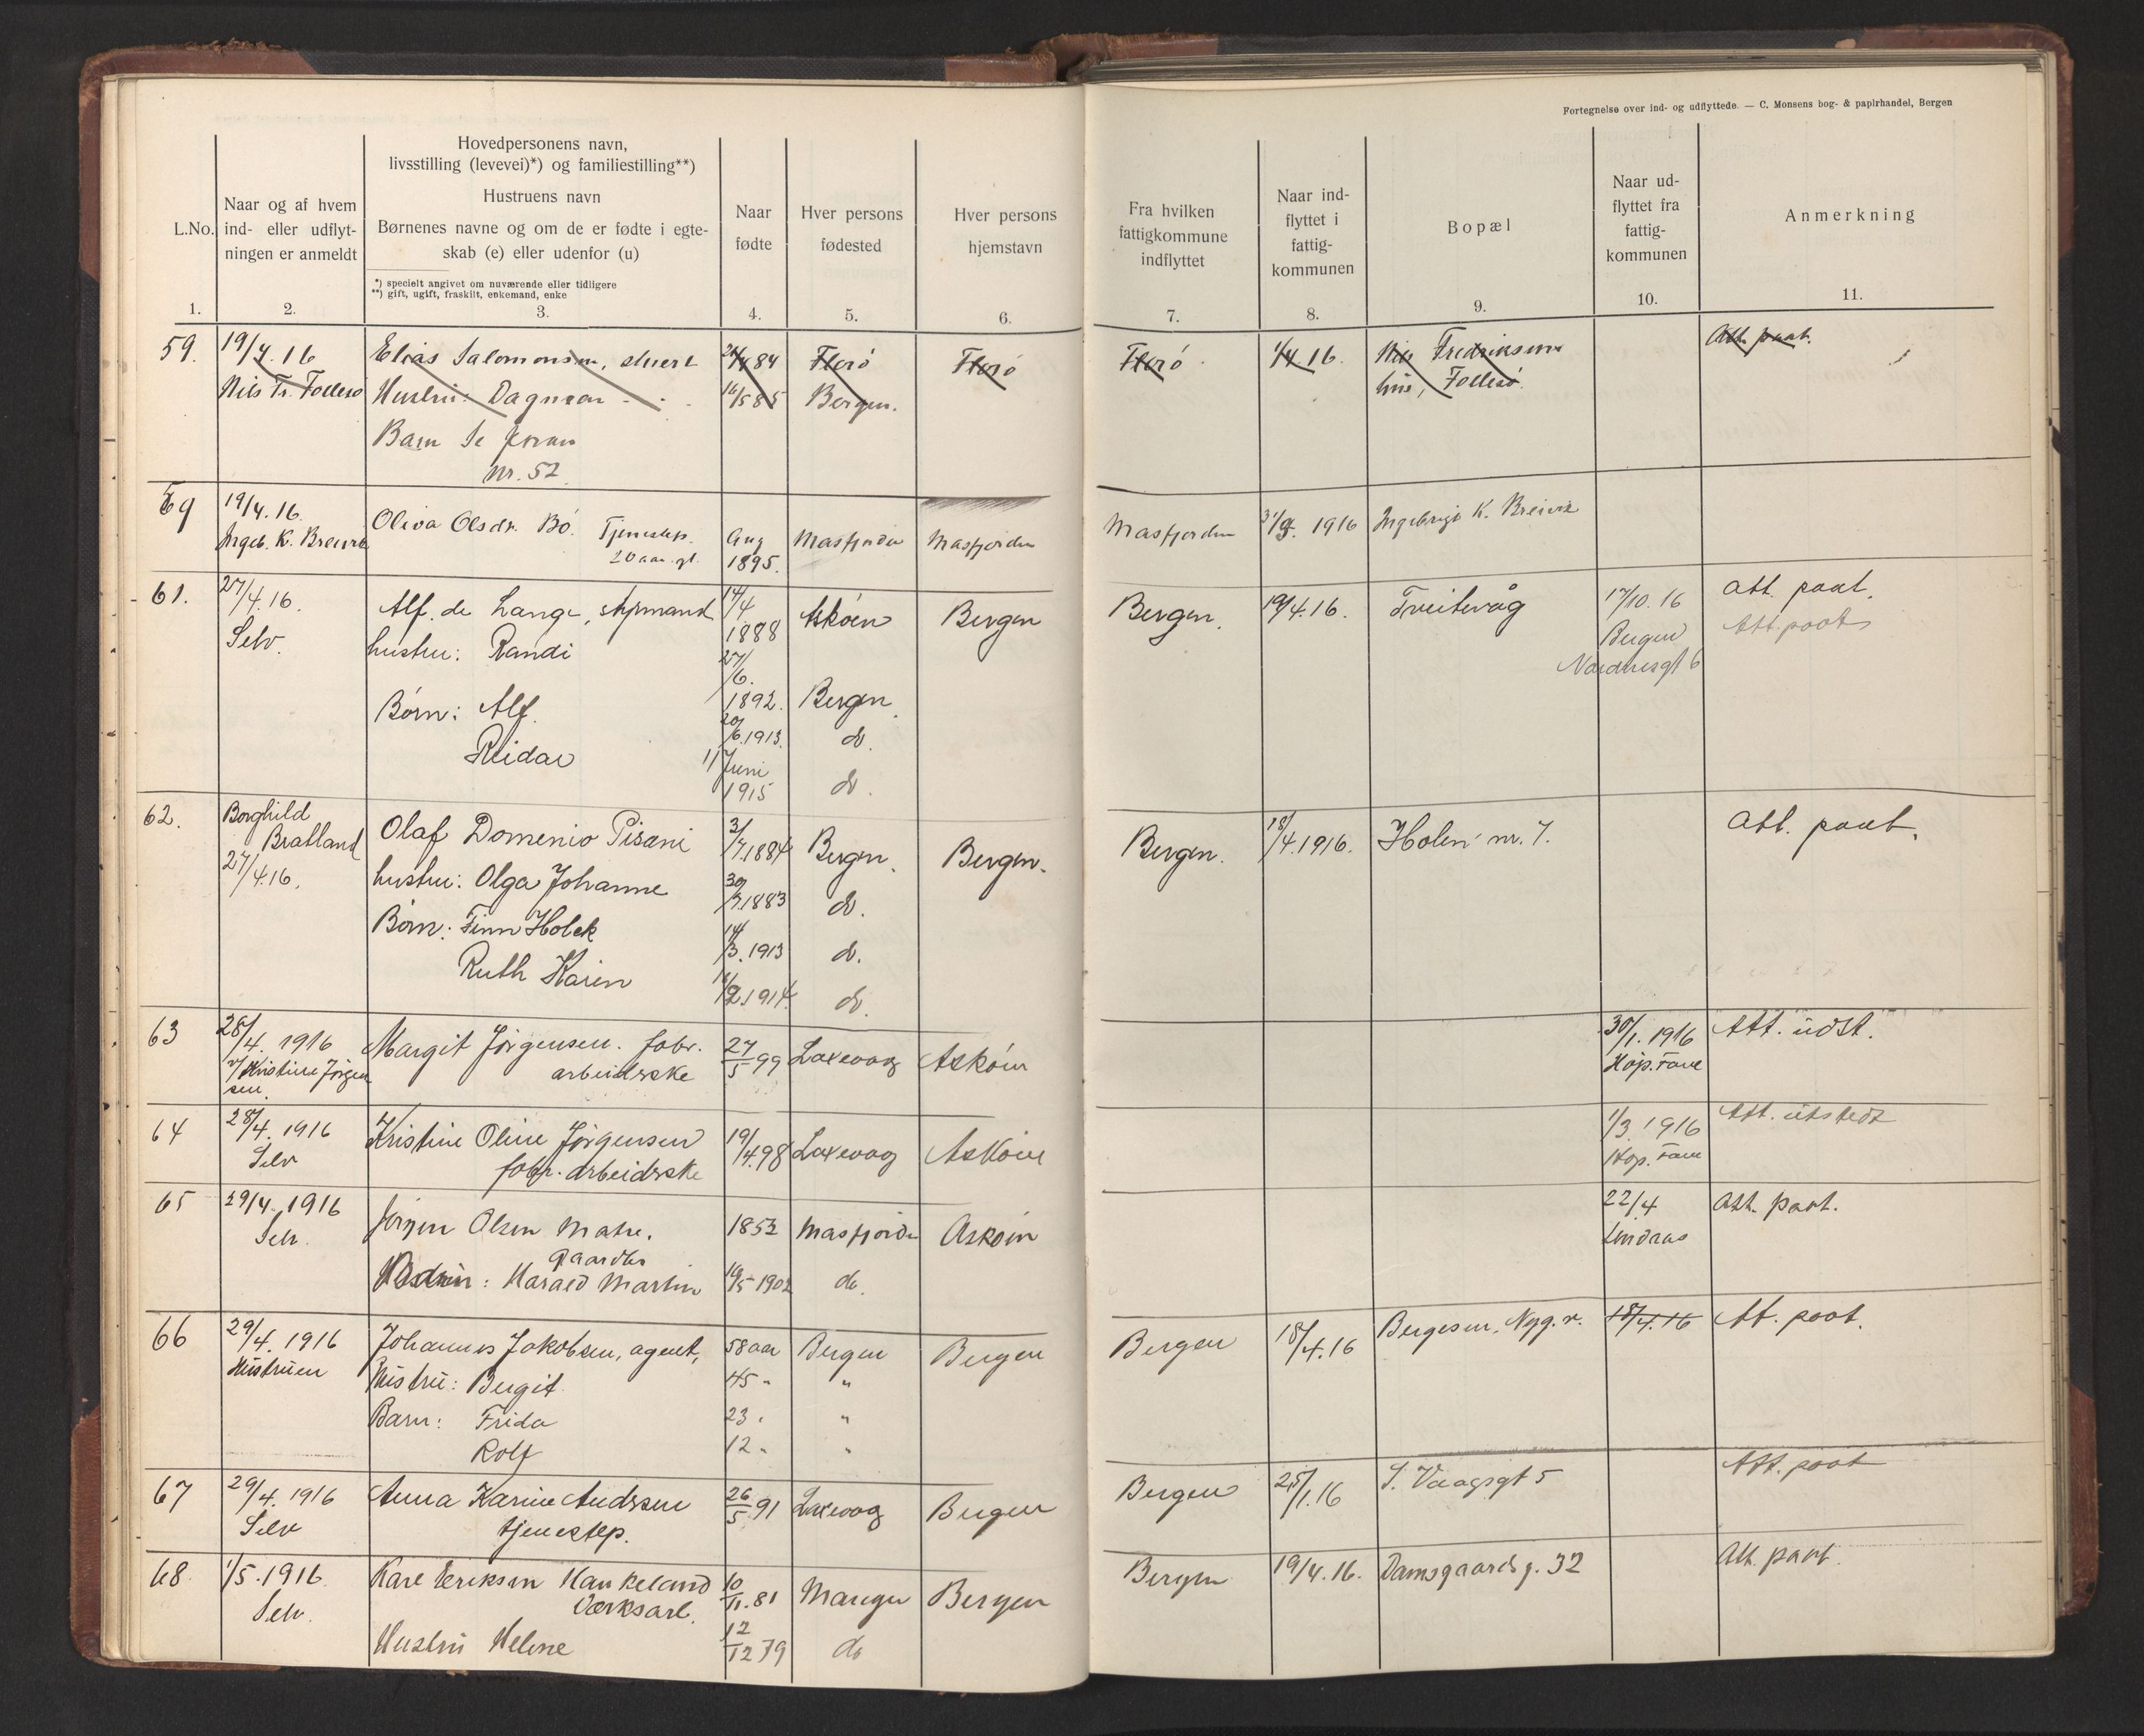 Fortegnelse over ind- og udflyttede. — C. Monsens bog- & papirhandel, Bergen
L.No.
1.
Naar og af hvem
ind- eller udflyt-
ningen er anmeldt
2.
Hovedpersonens navn,
livsstilling (levevei)*) og familiestilling**)
Hustruens navn
Børnenes navne og om de er fødte i egte-
skab (e) eller udenfor (u)
*) specielt angivet om nuværende eller tidligere
**) gift, ugift, fraskilt, enkemand, enke
3.
Naar
fødte
4.
Hver persons
fødested
5.
Hver persons
hjemstavn
6.
Fra hvilken
fattigkommune
indflyttet
7.
Naar ind-
flyttet i
fattig-
kommunen
8.
Bopæl
9.
Naar ud-
flyttet fra
fattig-
kommunen
10.
Anmerkning
11.
59.
19/4.16
Nils Fr. Follesø
Elias Salomonsen, stuert
Hustru: Dagmar
Barn Se foran
nr. 52
84
16/5 85
Florø
Bergen.
Florø
Florø
1/4 16.
Nils Fredriksens
hus, Follesø.
Att. paat.
69
19/4.16.
Ingeb. K. Breivik
Oliva Olsdr. Bø. Tjenestep.
20 aar gl.
Aug
1895.
Masfjorden
Masfjorden
Masfjorden
1916
Ingebrigt K. Breivik
61.
27/4.16.
Selv.
Alf. de Lange, styrmand
hustru: Randi
Børn: Alf.
Reidar
14/4
1888
27/6.
1892.
20/6.1913.
11/Juni
1915
Askøen
Bergen
do.
do.
Bergen
Bergen.
19/4.16.
Treitevåg
17/10.16
Bergen
Nordnesgt 6
Att. paat.
Att. paat
62.
Borghild
Bratland
27/4.16.
Olaf Domenio Pisani
hustru: Olga Johanne
Børn: Finn Holck
Ruth Karen
3/7.1884
30/7.1883
14/3.1913
1914
Bergen.
do.
do.
do.
Bergen.
Bergen.
18/4.1916.
Holen nr. 7.
Att. paat.
63
28/4. 1916
v/ Kristine Jørgen
sen.
Margit Jørgensen. fabr.
arbeiderske
27/5 99
Laxevaag
Askøen
30/1. 1916
Hop. Fane
Att. udst.
64
28/4. 1916
Selv
Kristine Oline Jørgensen
fabr. arbeiderske
19/4.98
Laxevaag
Askøen
1/3. 1916
Hop. Fane
Att. utstedt
65
29/4. 1916
Selv.
Jørgen Olsen Matre.
gaardbr
: Harald Martin
1853
16/5-1902
Masfjorde
do.
Askøen
22/4
Lindaas
Att. paat.
66
29/4. 1916
Hustruen
Johannes Jakobsen, agent,
Hustru: Bergit
Barn: Frida
Rolf
58 aar
45 "
23 "
12 "
Bergen
"
"
"
Bergen
Bergen
18/4.16
Bergesen, Nyg. v.
18/4.16
Att. paat.
67
29/4. 1916
Selv
Anna Karine Andersen
tjenestep.
26/5.91
Laxevaag
Bergen
Bergen
25/1.16
S. Vaagsgt 5
Att. paat
68
1/5.1916
Selv.
Karl Eriksen Haukeland
Værksarb.
Hustru Helene
10/11.81
12/12 79
Manger
do
Bergen
Bergen
19/4.16.
Damsgaardsg. 32
Att. paat.